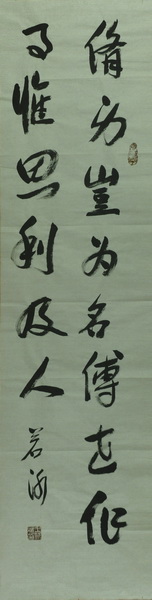 修身豈為名傳世作
事惟思利及人
若泳